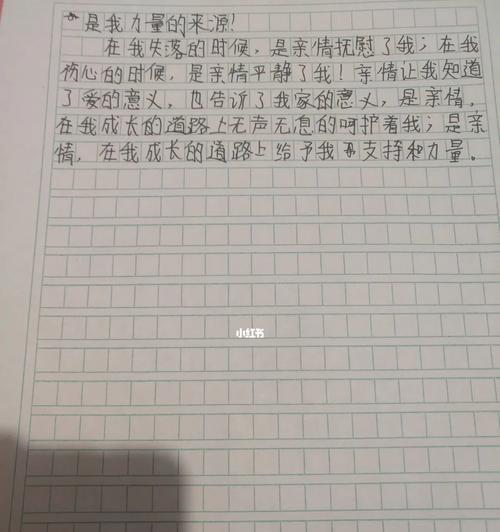 是我力量的来源!
在我失落的时候,是亲情抚慰了我;在我
伤心的时候,是亲情平静了我!亲情让我知道
了爱的意义,也告诉了我家的意义,是亲情,
在我成长的道路上无声无息的呵护着我;是亲
情,在我成长的道路上给予我支持和力量。
小红书